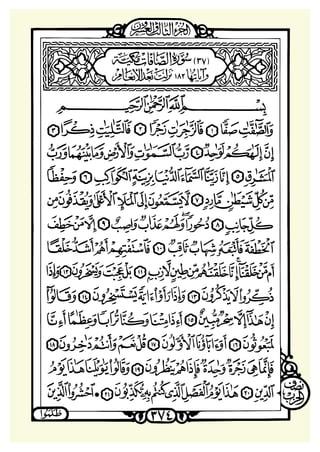 الجزء الثالث والعشرون
(٣٧) سُورَةُ الصَّافَّاتِ مَكِّيَّة
وآياتها ١٨٢ نزلت بعد الأنعام
بِسْمِ اللَّهِ الرَّحْمَٰنِ الرَّحِيمِ
وَالصَّٰٓفَّٰتِ صَفًّا ١ فَالزَّٰجِرَٰتِ زَجْرًا ٢ فَالتَّٰلِيَٰتِ ذِكْرًا ٣
إِنَّ إِلَٰهَكُمْ لَوَٰحِدٌ ٤ رَّبُّ السَّمَٰوَٰتِ وَالْأَرْضِ وَمَا بَيْنَهُمَا وَرَبُّ
الْمَشَٰرِقِ ٥ إِنَّا زَيَّنَّا السَّمَآءَ الدُّنْيَا بِزِينَةٍ الْكَوَاكِبِ ٦ وَحِفْظًا
مِّن كُلِّ شَيْطَٰنٍ مَّارِدٍ ٧ لَّا يَسَّمَّعُونَ إِلَى الْمَلَإِ الْأَعْلَىٰ وَيُقْذَفُونَ مِن
كُلِّ جَانِبٍ ٨ دُحُورًا وَلَهُمْ عَذَابٌ وَاصِبٌ ٩ إِلَّا مَنْ خَطِفَ
الْخَطْفَةَ فَأَتْبَعَهُ شِهَابٌ ثَاقِبٌ ١٠ فَاسْتَفْتِهِمْ أَهُمْ أَشَدُّ خَلْقًا
أَم مَّنْ خَلَقْنَآ إِنَّا خَلَقْنَٰهُم مِّن طِينٍ لَّازِبٍ ١١ بَلْ عَجِبْتَ وَيَسْخَرُونَ ١٢ وَإِذَا
ذُكِّرُوا لَا يَذْكُرُونَ ١٣ وَإِذَا رَأَوْا ءَايَةً يَسْتَسْخِرُونَ ١٤ وَقَالُوٓا
إِنْ هَٰذَآ إِلَّا سِحْرٌ مُّبِينٌ ١٥ أَءِذَا مِتْنَا وَكُنَّا تُرَابًا وَعِظَٰمًا أَءِنَّا
لَمَبْعُوثُونَ ١٦ أَوَءَابَآؤُنَا الْأَوَّلُونَ ١٧ قُلْ نَعَمْ وَأَنتُمْ دَٰخِرُونَ ١٨
فَإِنَّمَا هِيَ زَجْرَةٌ وَٰحِدَةٌ فَإِذَا هُمْ يَنظُرُونَ ١٩ وَقَالُوا يَٰوَيْلَنَا هَٰذَا يَوْمُ
الدِّينِ ٢٠ هَٰذَا يَوْمُ الْفَصْلِ الَّذِي كُنتُم بِهِ تُكَذِّبُونَ ٢١ * احْشُرُوا الَّذِينَ
نصف الحزب
٣٧٤
ظَلَمُوا